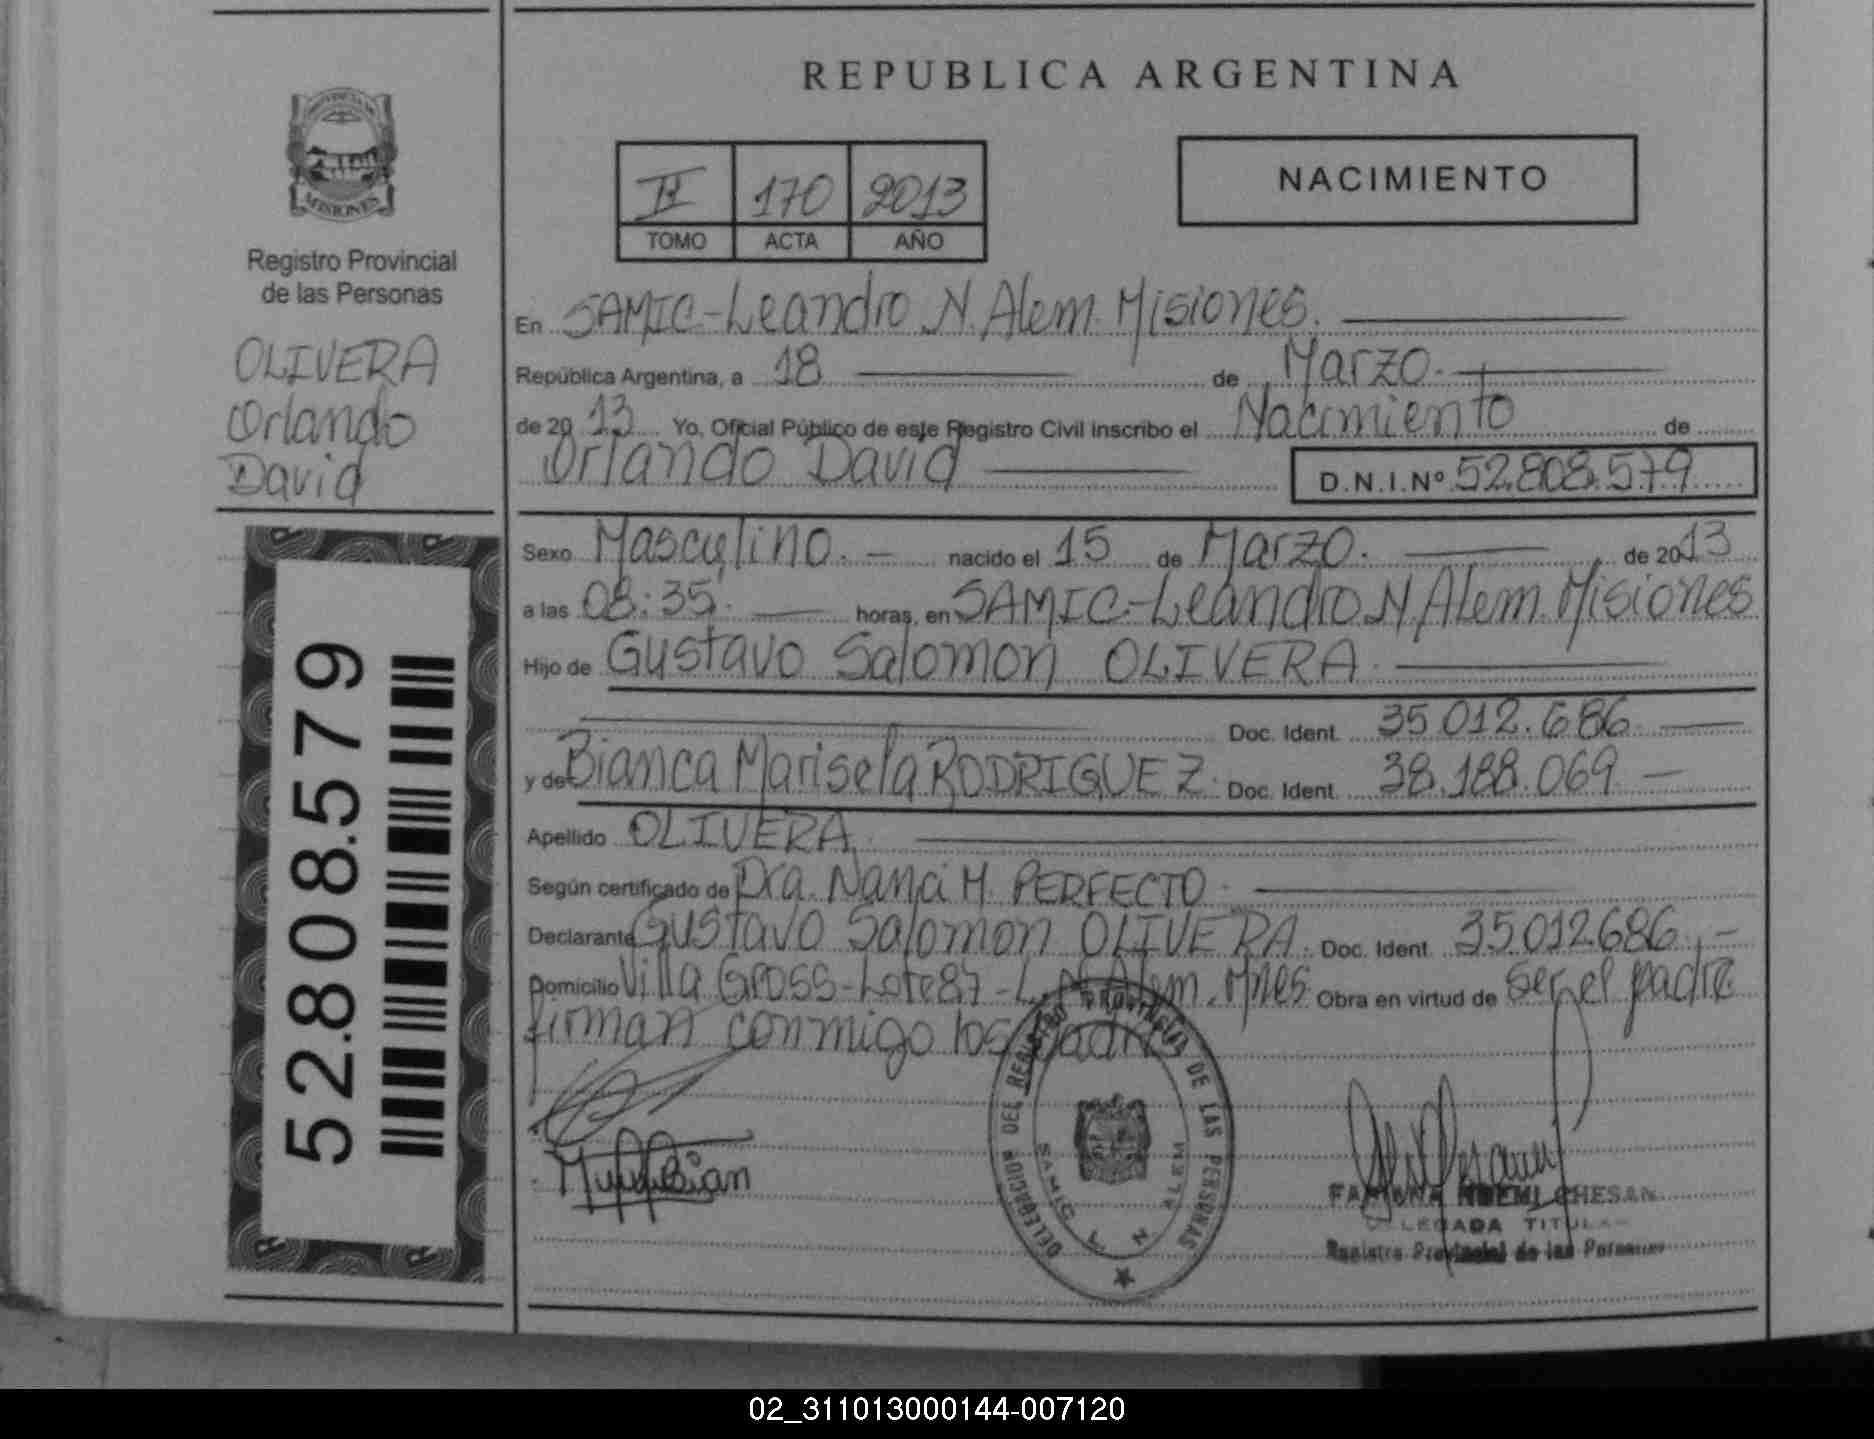 REPUBLICA ARGENTINA
MISIONES
Registro Provincial
de las Personas
OLIVERA
Orlando
David
52.808.579
II 170 2013
TOMO ACTA AÑO
NACIMIENTO
En SAMIC-Leandro N. Alem. Misiones.
República Argentina, a 18 de Marzo.
de 2013 Yo, Oficial Público de este Registro Civil inscribo el Nacimiento de
Orlando David D.N.I.Nº 52.808.579
Sexo Masculino. nacido el 15 de Marzo. de 2013
a las 08:35. horas, en SAMIC-Leandro N. Alem. Misiones
Hijo de Gustavo Salomon OLIVERA.
Doc. Ident. 35.012.686
y de Bianca Marisela RODRIGUEZ. Doc. Ident. 38.188.069
Apellido OLIVERA.
Según certificado de Dra. Nanci M. PERFECTO.
Declarante Gustavo Salomon OLIVERA. Doc. Ident. 35.012.686.-
Domicilio Villa Gross-Lote 87-L. N. Alem. Mnes. Obra en virtud de ser el padre
firman conmigo los padres
DELEGACION DEL REGISTRO PROVINCIAL DE LAS PERSONAS
SAMIC L N ALEM
FABIANA NOEMI CHESAN
DELEGADA TITULAR
Registro Provincial de las Personas
02_311013000144-007120